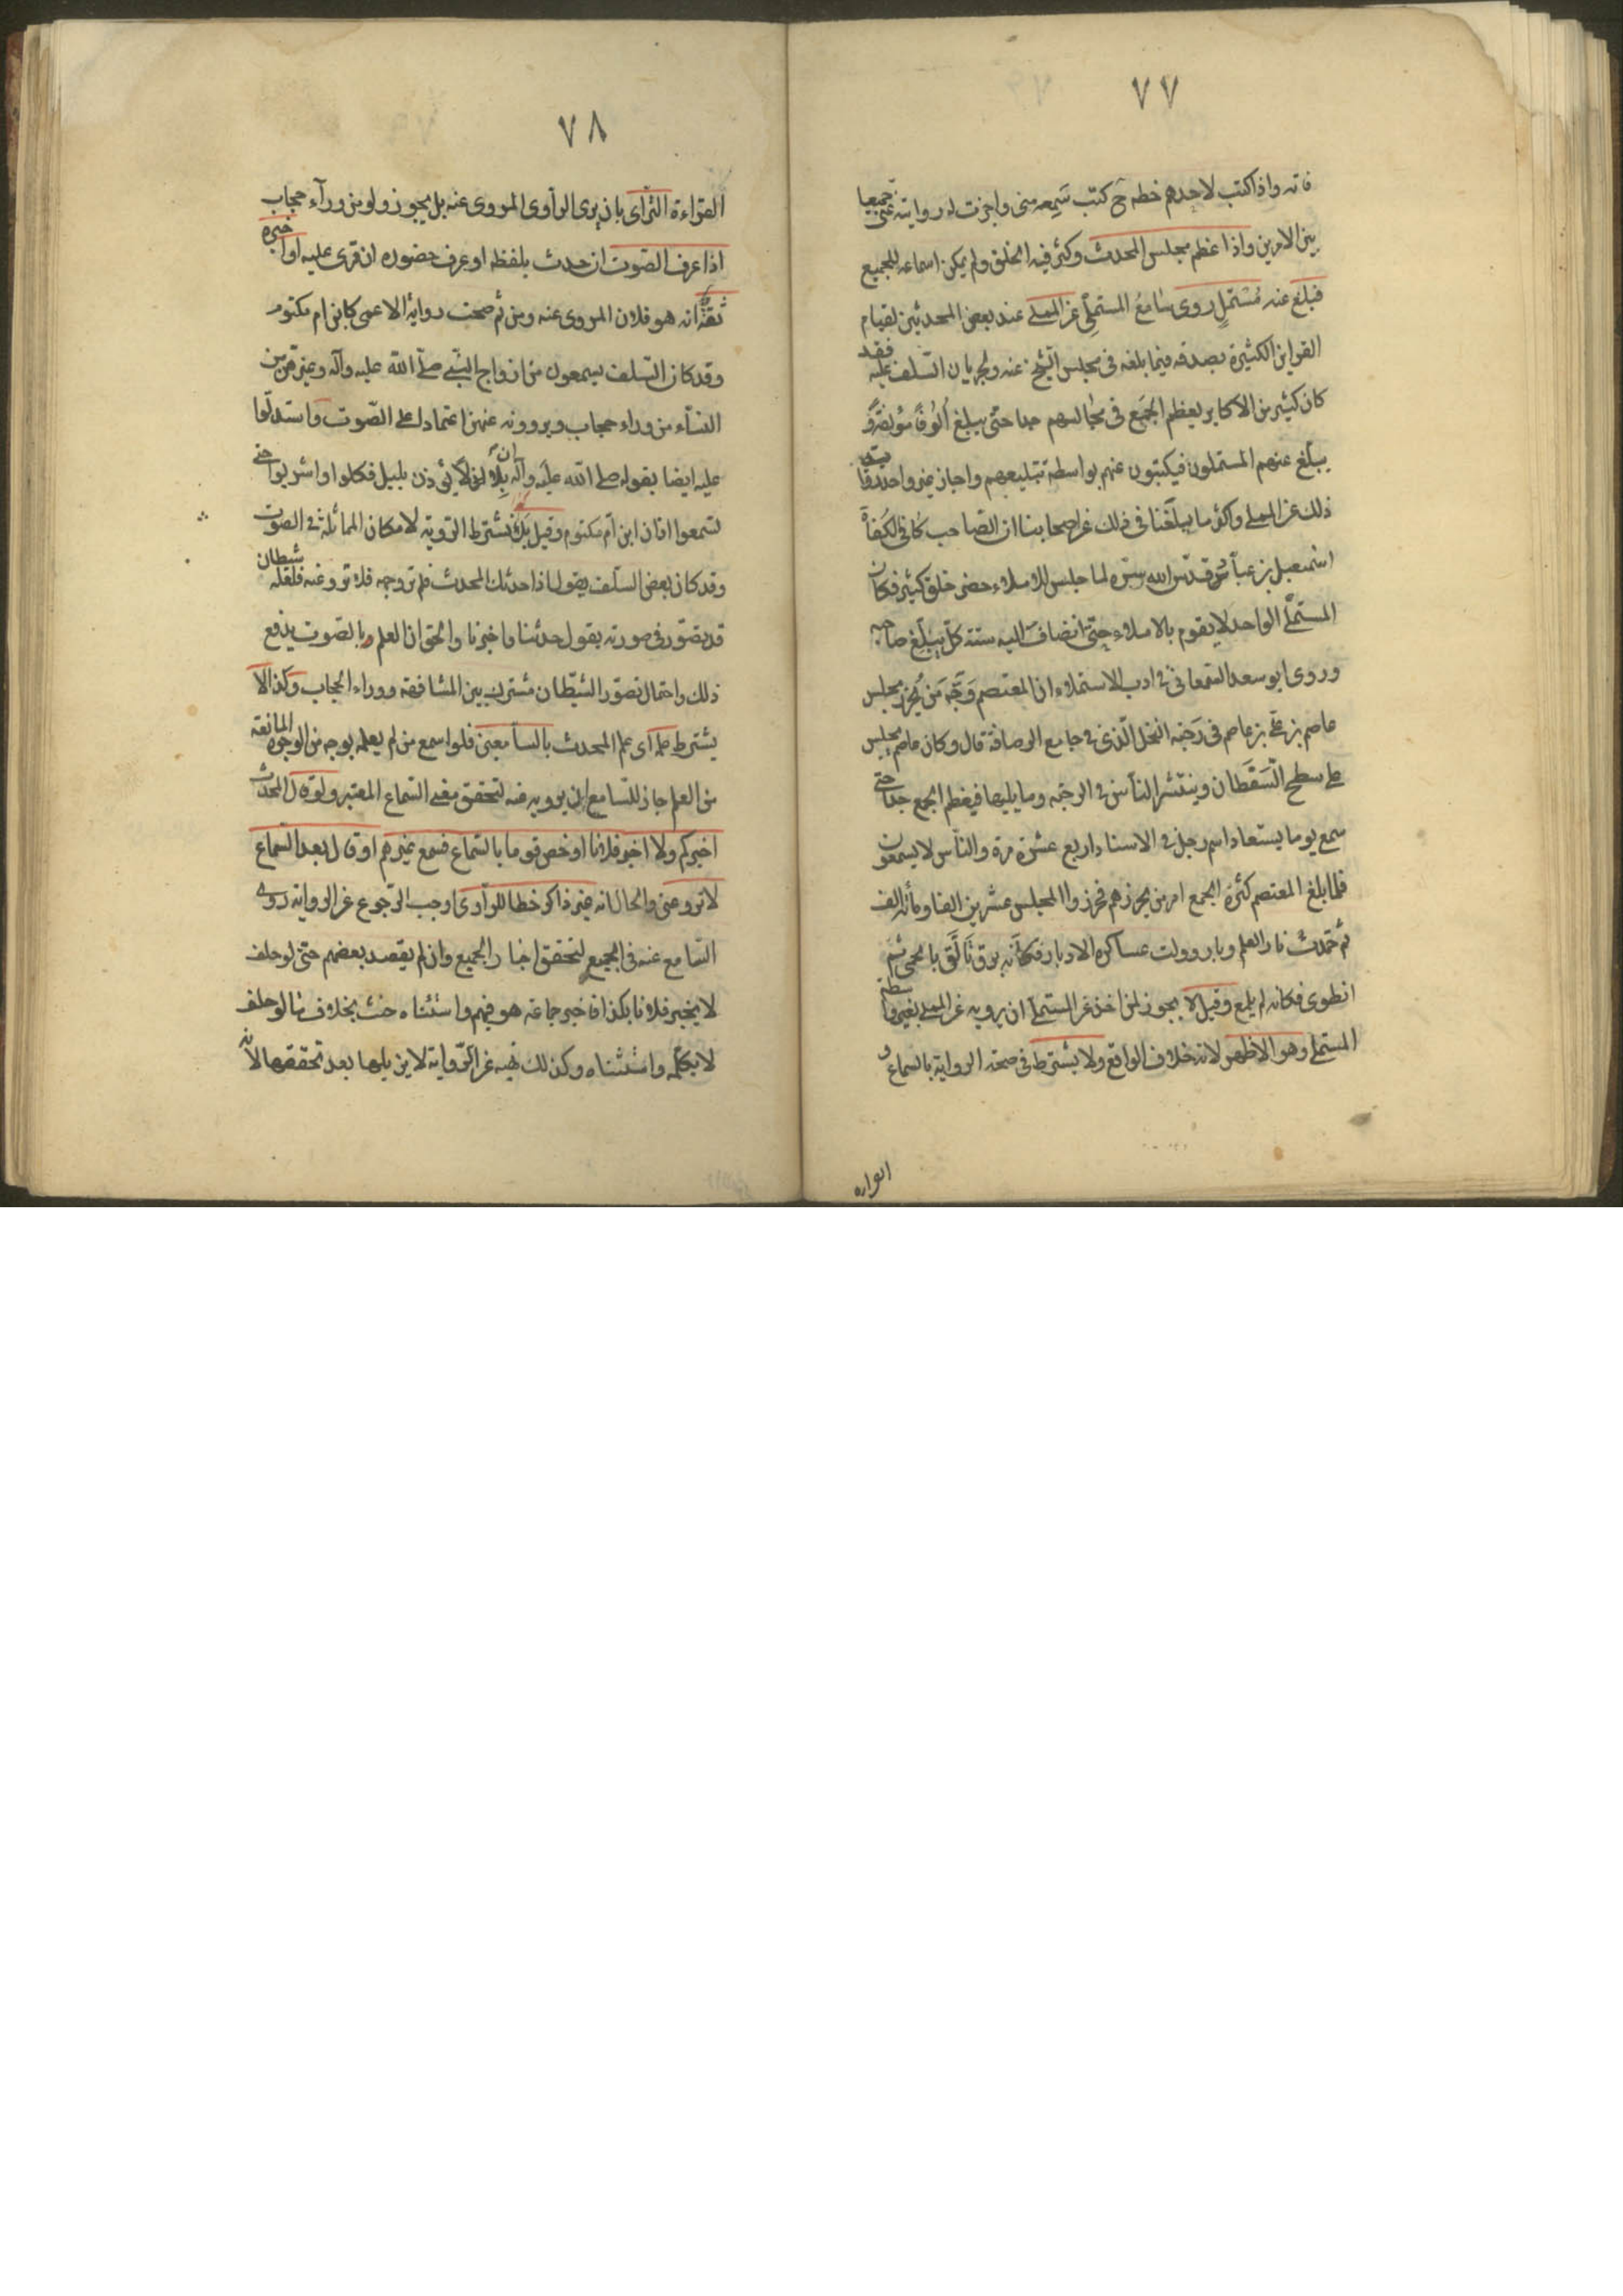 ٧٧
فاته واذا كتب لاحدهم خطه ح كتب سمعه منى واجزت له روايته عنى جميعا
بين الامرين واذا عظم مجلس المحدث وكثر فيه الخلق ولم يمكن اسماعه للجميع
فبلغ عنه مستمل روى سامع المستملى عن المملى عند بعض المحدثين لقيام
القراين الكثيرة بصدقه فيما بلغه فى مجلس الشيخ عنه ولجريان السلف عليه فقد
كان كثير من الاكابر يعظم الجمع فى مجالسهم جدا حتى يبلغ الوفا مؤلفة و
يبلغ عنهم المستملون فيكتبون عنهم بواسطة تبليغهم واجاز غير واحد رواية
ذلك عن المملى واكثر ما يبلغنا فى ذلك عن اصحابنا ان الصاحب كافى الكفاة
اسمعيل بن عباد قدس الله سره لما جلس للاملاء حضر خلق كثير فكان
المستملى الواحد لا يقوم بالاملاء حتى انضاف اليه ستة كل يبلغ صاحبه
وروى ابو سعد السمعانى فى ادب الاستملاء ان المعتصم وجه من يحزر مجلس
عاصم بن على بن عاصم فى رحبة النخل الذى فى جامع الرصافة قال وكان عاصم يجلس
على سطح السقطان وينتشر الناس فى الرحبه وما يليها فيعظم الجمع جدا حتى
سمع يوما يستعاد اسم رجل فى الاسناد اربع عشرة مرة والناس لا يسمعون
فلما بلغ المعتصم كثرة الجمع امر من يحزرهم فحزروا المجلس عشرين الفا ومائة الف
ثم خمدت نار العلم وبار وولت عساكره الادبار فكانه برق تالق بالحمى ثم
انطوى فكانه لم يلمع وقيل لا يجوز لمن اخذ عن المستملى ان يرويه عن المملى بغير واسطة
المستملى وهو الاظهر لانه خلاف الواقع ولا يشترط فى صحة الرواية بالسماع و
القراءة
٧٨
القراءة الترائى بان يرى الراوى المروى عنه بل يجوز ولو من وراء حجاب
اذا عرف الصوت ان حدث بلفظه او عرف حضوره ان قرئ عليه او اخبره
ثقة انه هو فلان المروى عنه ومن ثم صحت رواية الاعمى كابن ام مكتوم
وقد كان السلف يسمعون من ازواج النبى صلى الله عليه وآله وغيرهن من
النساء من وراء حجاب ويروونه عنهن اعتمادا على الصوت واستدلوا
عليه ايضا بقوله صلى الله عليه وآله ان بلالا يؤذن بليل فكلوا واشربوا حتى
تسمعوا اذان ابن ام مكتوم وقيل بل يشترط الرؤية لامكان المماثلة فى الصوت
وقد كان بعض السلف يقول اذا حدثك المحدث فلم تر وجهه فلا ترو عنه فلعله شيطان
قد تصور فى صورته يقول حدثنا واخبرنا والحق ان العلم بالصوت يدفع
ذلك واحتمال تصور الشيطان مشترك بين المشافهة ووراء الحجاب وكذا لا
يشترط علمه اى علم المحدث بالسامعين فلو اسمع من لم يعلمه بوجه من الوجوه المانعة
من العلم جاز للسامع ان يرويه عنه لتحقق معنى السماع المعتبر ولو قال المحدث
اخبركم ولا اخبر فلانا او خص قوما بالسماع فسمع غيرهم او قال بعد السماع
لا ترو عنى والحال انه غير ذاكر خطا للراوى اوجب الرجوع عن الرواية روى
السامع عنه فى الجميع لتحقق اخبار الجميع وان لم يقصد بعضهم حتى لو حلف
لا يخبر فلانا بكذا فاخبر جماعة هو فيهم واستثناه حنث بخلاف ما لو حلف
لا يكلمه واستثناه وكذلك نهيه عن الرواية لا يزيلها بعد تحققها لانه